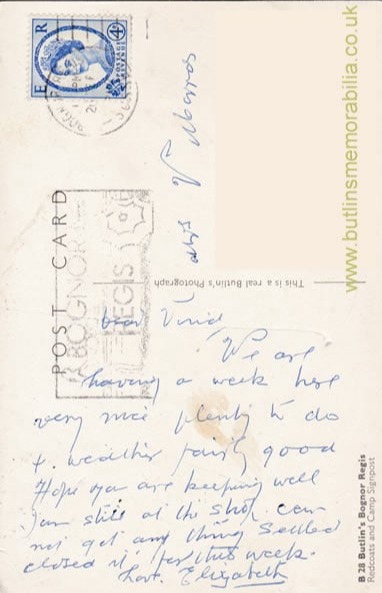 E R
4D
POSTAGE
REVENUE
POST CARD
BOGNOR
REGIS
www.butlinsmemorabilia.co.uk
This is a real Butlin's Photograph
We are
having a week here
very nice plenty to do
& weather fairly good
Hope you are keeping well
I am still at the shop. can
not get any thing Settled
closed it for this week.
Love. Elizabeth
B 28 Butlin's Bognor Regis
Redcoats and Camp Signpost